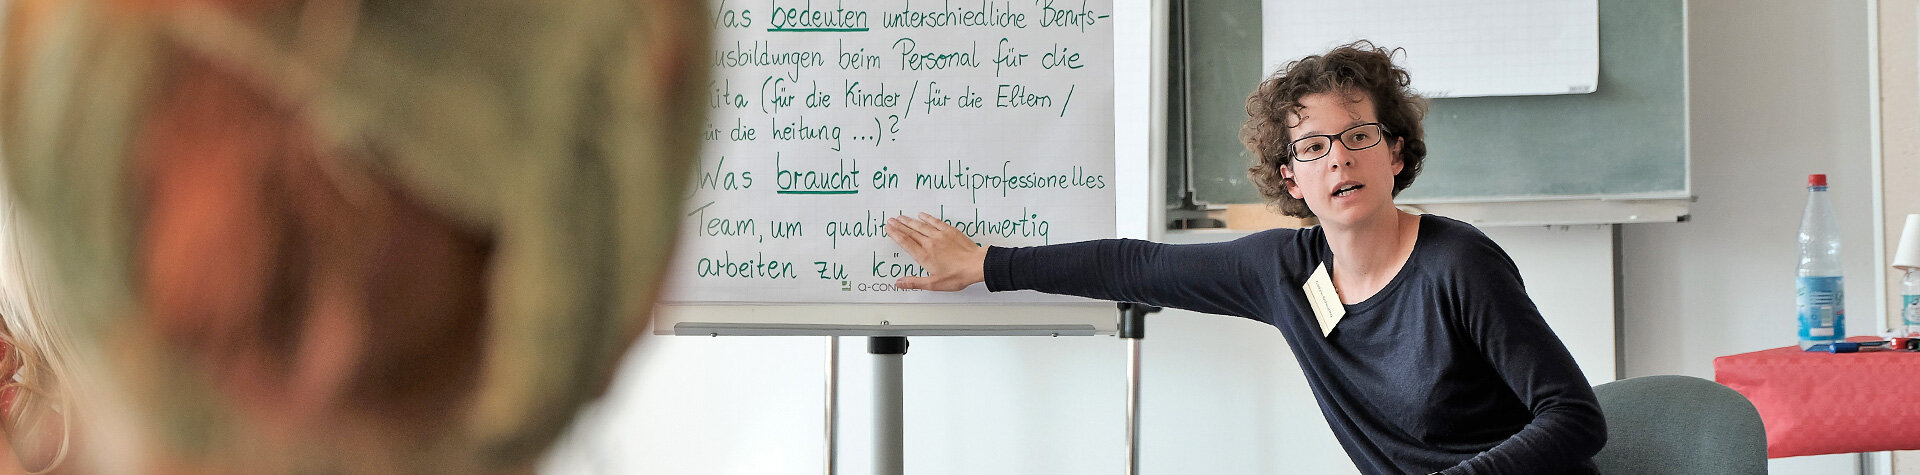 Was bedeuten unterschiedliche Berufs-
ausbildungen beim Personal für die
Kita (für die Kinder / für die Eltern /
für die heitung ...)?
Was braucht ein multiprofessionelles
Team, um qualit hochwertig
arbeiten zu könn
Q-CONNECT